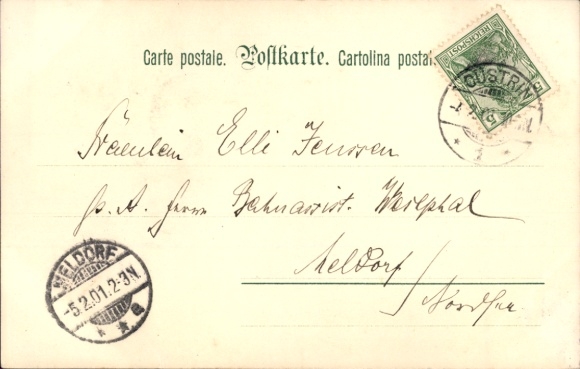 Carte postale. Postkarte. Cartolina postal
REICHSPOST
5 5
CÜSTRIN
1
Fräulein Elli Jenssen
p. A. Herrn Bahnassist. Westphal
Meldorf
MELDORF
-5.2.01.2-3N.